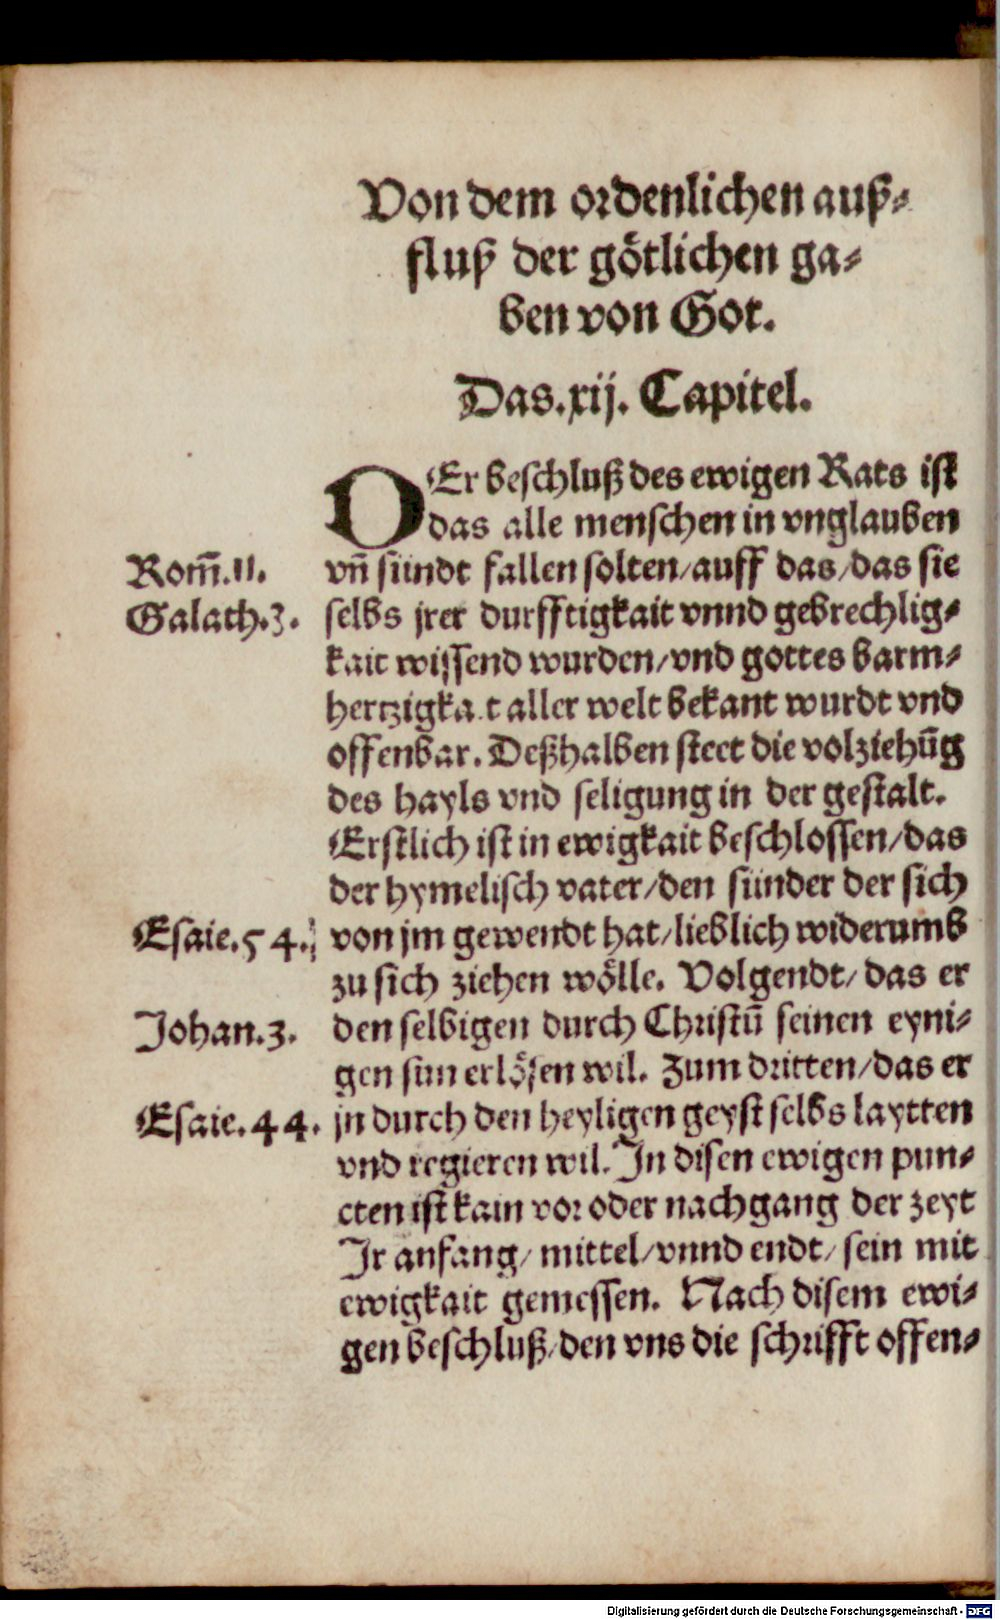 Von dem ordenlichen auß⸗
fluß der goͤtlichen ga⸗
ben von Got.
Das.xij. Capitel.
DEr beschluß des ewigen Rats ist
das alle menschen in vnglauben
Rom̄.11.
vn̄ sündt fallen solten/auff das/das sie
Galath.3.
selbs jrer durfftigkait vnnd gebrechlig⸗
kait wissend wurden/vnd gottes barm⸗
hertzigka t aller welt bekant wurdt vnd
offenbar. Deßhalben steet die volziehūg
des hayls vnd seligung in der gestalt.
Erstlich ist in ewigkait beschlossen/das
der hymelisch vater/den sünder der sich
Esaie.54.
von jm gewendt hat/lieblich widerumb
zu sich ziehen woͤlle. Volgendt/das er
Johan.3.
den selbigen durch Christū seinen eyni⸗
gen sun erloͤsen wil. Zum dritten/das er
Esaie.44.
jn durch den heyligen geyst selbs laytten
vnd regieren wil. In disen ewigen pun⸗
cten ist kain vor oder nachgang der zeyt
Ir anfang/mittel/vnnd endt/sein mit
ewigkait gemessen. Nach disem ewi⸗
gen beschluß/den vns die schrifft offen⸗
Digitalisierung gefördert durch die Deutsche Forschungsgemeinschaft - DFG